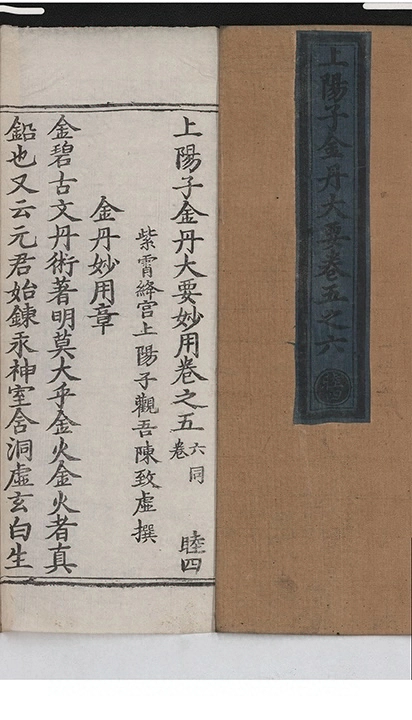 上陽子金丹大要卷五之六
睦四
上陽子金丹大要妙用卷之五 六同卷 睦四
紫霄絳宮上陽子觀吾陳致虛撰
金丹妙用章
金碧古文丹術著明莫大乎金火金火者真
鉛也又云元君始鍊汞神室含洞虛玄白生